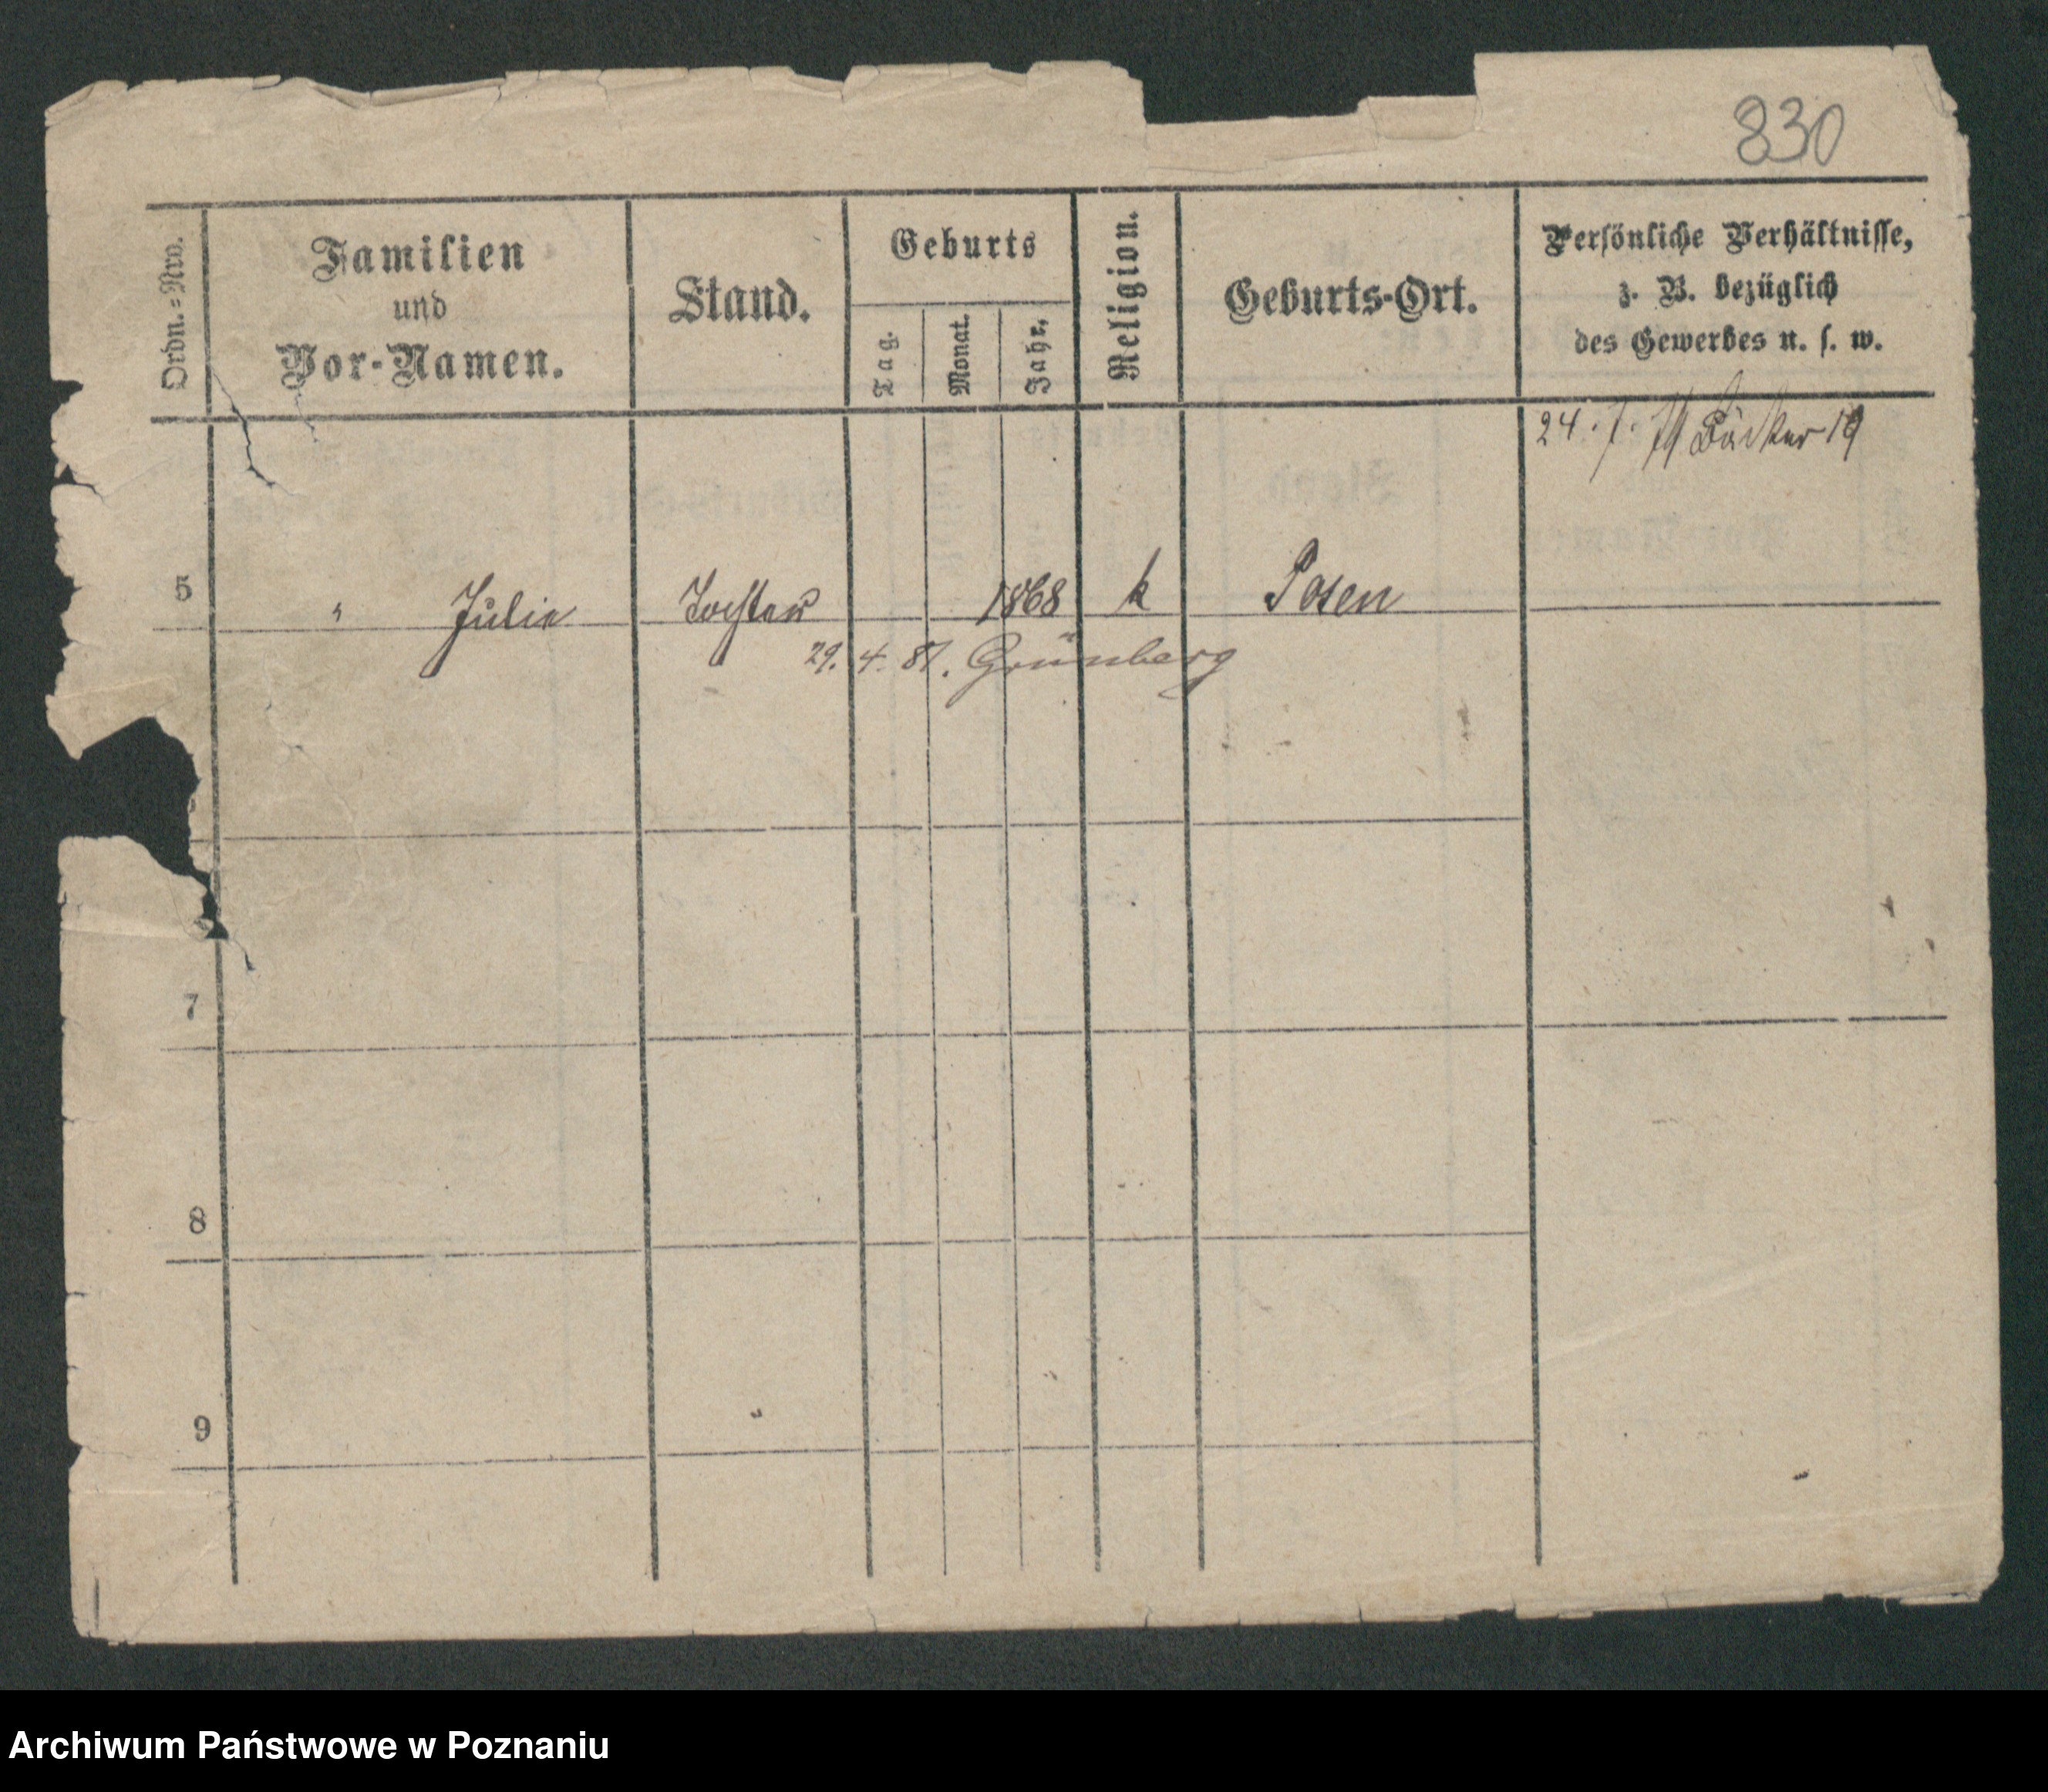 830
Ordn.=Nro.
Familien
und
Vor-Namen.
Stand.
Geburts
Tag.
Monat.
Jahr.
Religion.
Geburts-Ort.
Persönliche Verhältnisse,
z. B. bezüglich
des Gewerbes u. s. w.
24. 7. Bäcker 19
5 " Julie Tochter 1868 k Posen
29. 4. 87. Grünberg
7
8
9
Archiwum Państwowe w Poznaniu